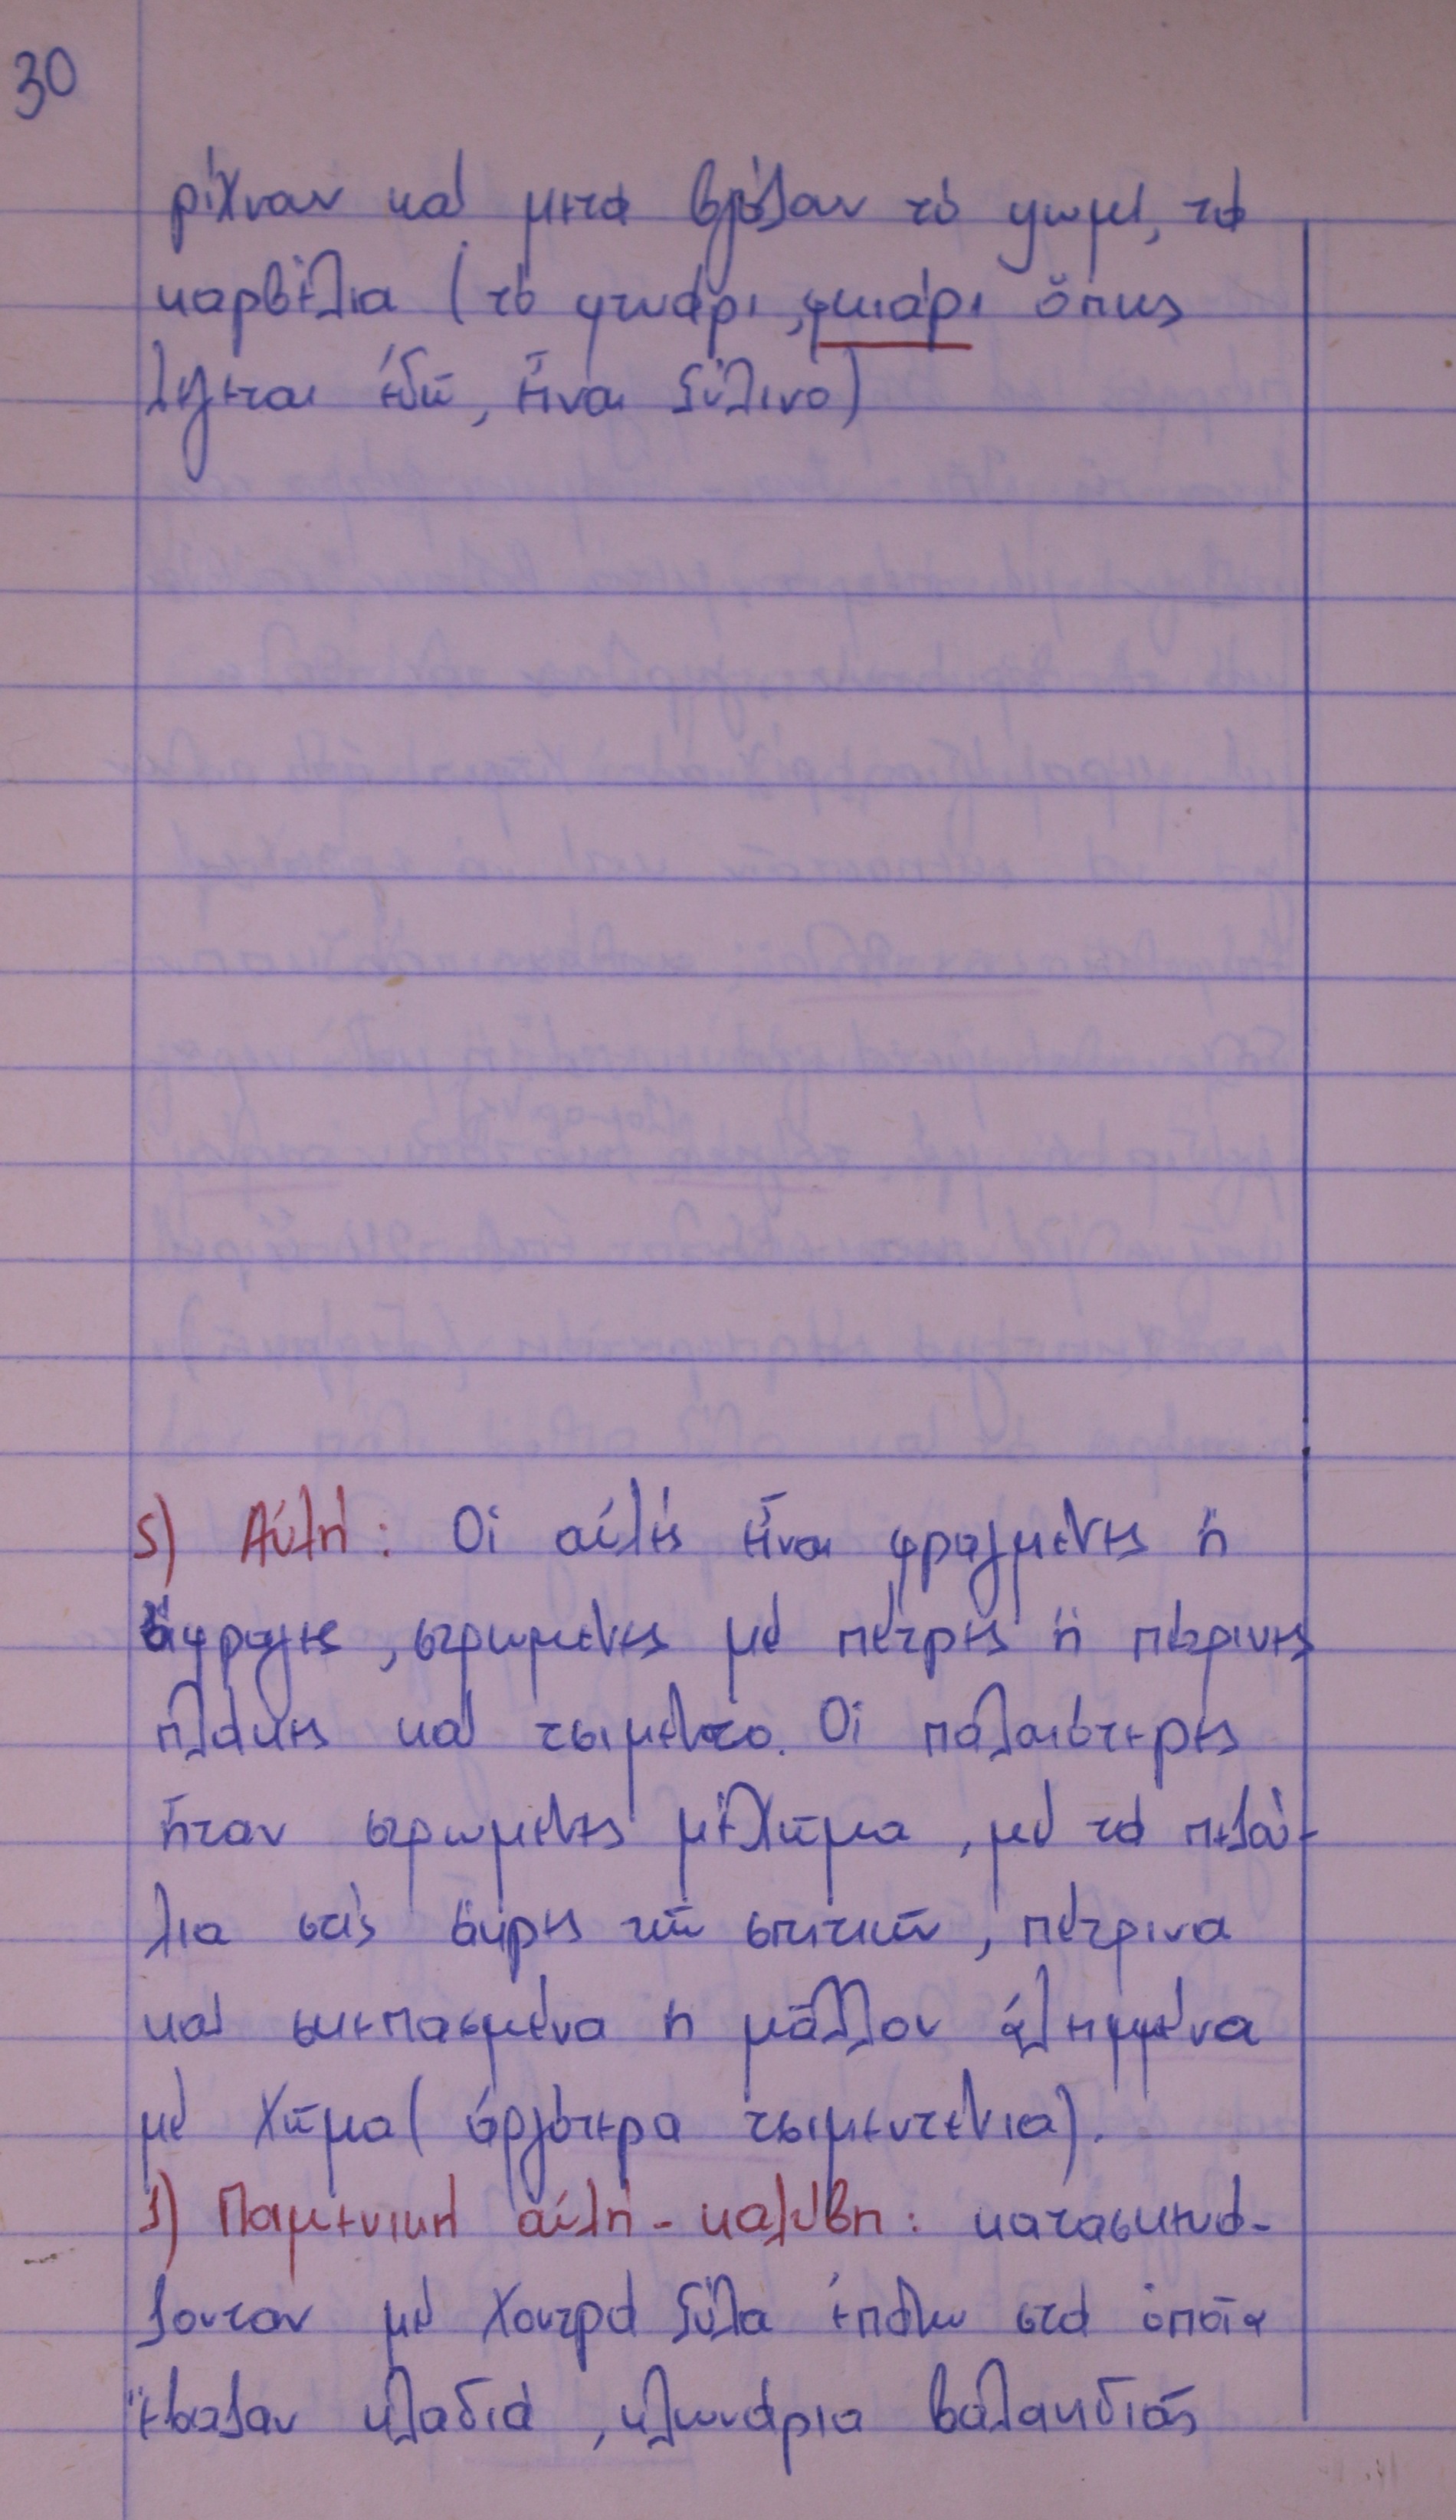 30
ρίχναν καὶ μετὰ βγάζαν τὸ ψωμί, τὰ
καρβέλια (τὸ φτυάρι, φκιάρι ὅπως
λέγεται ἐδῶ, εἶναι ξύλινο)
5) Αὐλή: Οἱ αὐλές εἶναι φραγμένες ἢ
ἄφραγες, στρωμένες μὲ πέτρες ἢ πέτρινες
πλάκες καὶ τσιμέντο. Οἱ παλαιότερες
ἦταν στρωμένες μὲ χῶμα, μὲ τὰ πεζού-
λια στὶς ἄκρες τῶν σπιτιῶν, πέτρινα
καὶ σκεπασμένα ἢ μᾶλλον ἀλειμμένα
μὲ χῶμα (ἀργότερα τσιμεντένια).
1) Ποιμενικὴ αὐλὴ - καλύβη: κατασκευά-
ζονταν μὲ χοντρὰ ξύλα ἐπάνω στὰ ὁποῖα
ἔβαζαν κλαδιά, κλωνάρια βαλανιδιᾶς